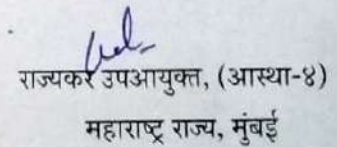 राज्यकर उपआयुक्त, (आस्था-४)
महाराष्ट्र राज्य, मुंबई